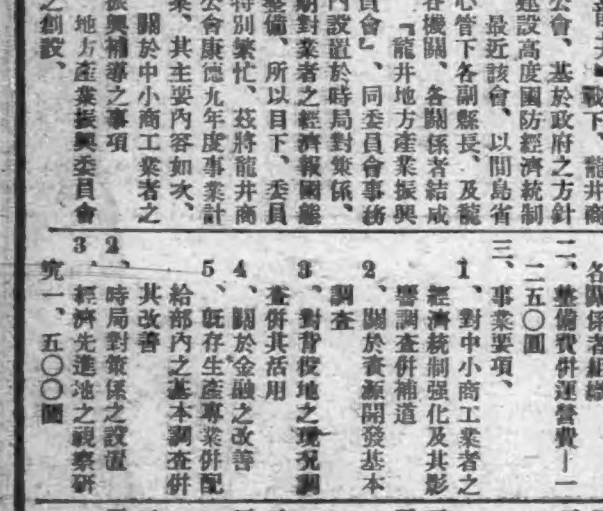 公會、基於政府之方針
建設高度國防經濟統制
最近該會、以間島省
心管下各副縣長、及龍
各機關、各關係者結成
『龍井地方產業振興
員會』、同委員會事務
內設置於時局對策係、
期對業者之經濟報國態
整備、所以目下、委員
特別繁忙、茲將龍井商
公會康德九年度事業計
業、其主要內容如次、
關於中小商工業者之
振興補導之事項
地方產業振興委員會
之創設、
各關係者組織
二、整備費併運營費―一
二五〇圓
三、事業要項、
1、對中小商工業者之
經濟統制强化及其影
響調查併補道
2、關於資源開發基本
調查
3、對背後地之現況調
查併其活用
4、關於金融之改善
5、既存生產事業併配
給部內之基本調查併
其改善
2、時局對策係之設置
3、經濟先進地之視察研
究一、五〇〇圓